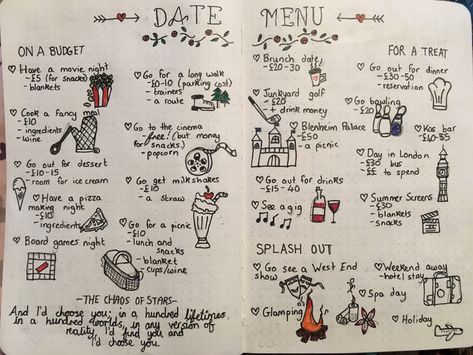 DATE MENU
ON A BUDGET
♡ Have a movie night
- £5 (for snacks)
- blankets
♡ Cook a fancy meal
- £10
- ingredients
- wine
♡ Go out for dessert
- £10-15
- room for ice cream
♡ Have a pizza
making night
- £10
- ingredients
♡ Board games night
♡ Go for a long walk
- £0-10 (parking cost)
- trainers
- a route
♡ Go to the cinema
- free! (but money
for snacks)
- popcorn
♡ Get milkshakes
- £10
- a straw
♡ Go for a picnic
- £10
- lunch and
snacks
- blanket
- cups/wine
-THE CHAOS OF STARS-
And I'd choose you; in a hundred lifetimes,
in a hundred worlds, in any version of
reality, I'd find you and
I'd choose you.
FOR A TREAT
♡ Brunch date
- £20-30
♡ Junkyard golf
- £20
- drink money
♡ Blenheim Palace
- £50
- a picnic
♡ Go out for drinks
- £15-40
♡ See a gig
♡ Go out for dinner
- £30-50
- reservation
♡ Go bowling
- £20
♡ Kos bar
- £40-55
♡ Day in London
- £30 bus
- ££ to spend
♡ Summer Screens
- £30
- blankets
- snacks
SPLASH OUT
♡ Go see a West End
show
♡ Glamping
♡ Weekend away
- hotel stay
♡ Spa day
♡ Holiday